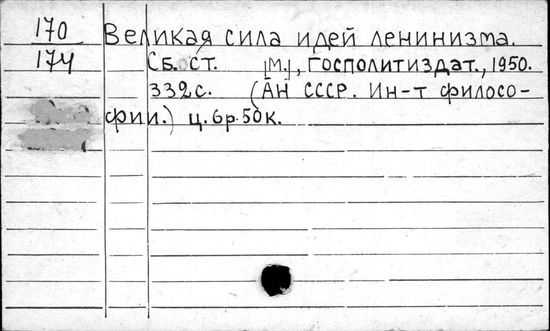 170 Великая сила идей ленинизма.
174 Сб. ст. [М.], Госполитиздат., 1950.
332 с. (АН СССР. Ин-т филосо-
фии.) ц. 6р. 50к.